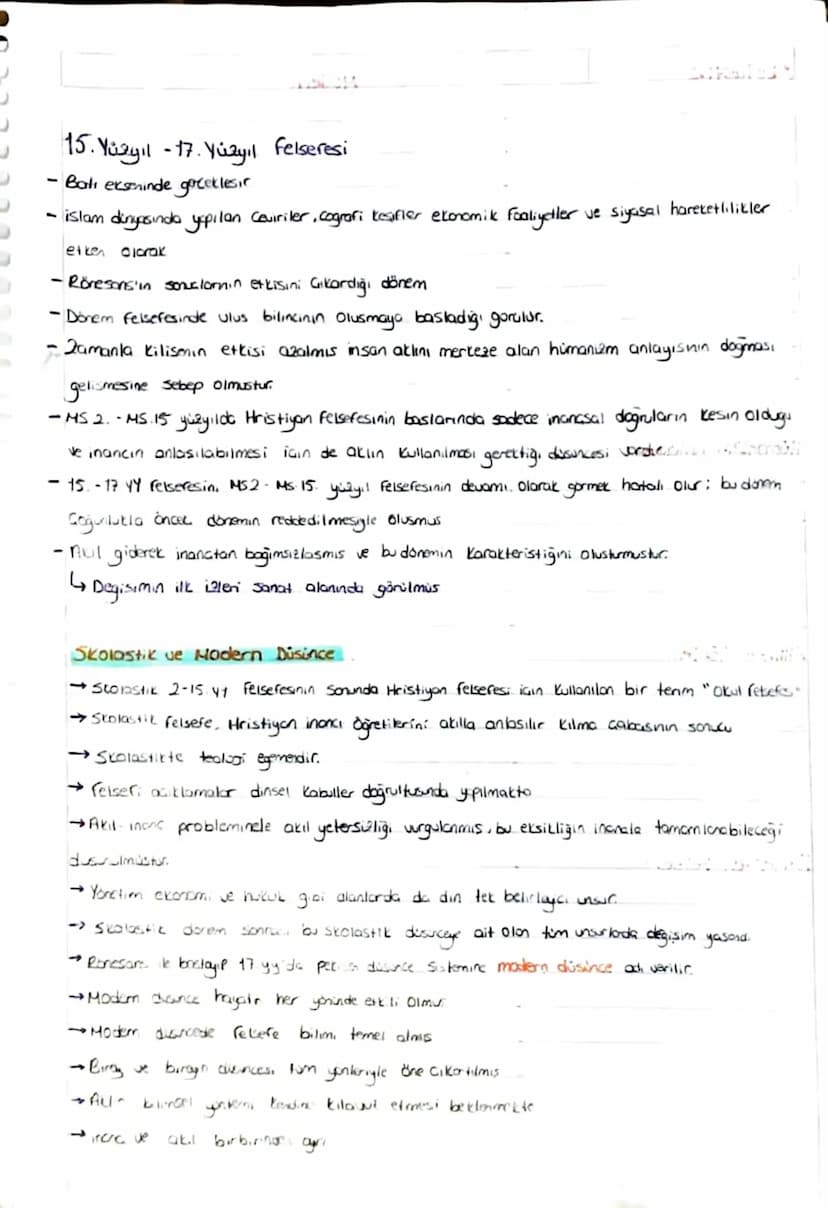 15. Yüzyıl - 17. Yüzyıl Felseresi
- Batı ekseninde geçekleşir
- islam dünyasında yapılan Çeviriler, coğrafi keşifler ekonomik Faaliyetler ve siyasal hareketlilikler
etken olarak
- Rönesans'ın sonuçlarının etkisini Çıkardığı dönem
- Dönem Felsefesinde ulus bilincinin oluşmaya başladığı görülür.
- Zamanla kilisinin etkisi azalmış insan aklını merkeze alan hümanizm anlayışının doğması
gelişmesine sebep olmuştur.
- MS 2. - MS.15 yüzyılda Hristiyan Felsefesinin başlarında sadece inançsal doğruların kesin olduğu
ve inancın anlaşılabilmesi için de aklın kullanılması gerektiği düşüncesi
- 15. - 17 YY Felsefesin, MS2 - MS 15. yüzyıl Felsefesinin devamı olarak görmek hatalı olur; bu dönem
Çoğunlukla önceki dönemin reddedilmesiyle oluşmuş
- Akıl giderek inançtan bağımsızlaşmış ve bu dönemin karakteristiğini oluşturmuştur.
↳ Değişimin ilk izleri sanat alanında görülmüş
Skolastik ve Modern Düşünce
→ Skolastik 2-15. yy Felsefesinin Sonunda Hristiyan Felseresi için kullanılan bir terim "Okul felsefesi"
→ Skolastik felsefe, Hristiyan inancı öğretilerini akılla anlaşılır kılma çabasının sonucu
→ Skolastikte teoloji egemendir.
→ Felsefi açıklamalar dinsel kabuller doğrultusunda yapılmakta
→ Akıl - inanç probleminde akıl yetersizliği vurgulanmış, bu eksikliğin inançla tamamlanabileceği
düşünülmüştür.
→ Yönetim ekonomi ve hukuk gibi alanlarda da din tek belirleyici unsur.
→ Skolastik dönem sonrası bu skolastik düşünceye ait olan tüm unsurlarda değişim yaşandı.
→ Rönesans ile başlayıp 17 yy'da düşünce sistemine modern düşünce adı verilir.
→ Modern düşünce hayatın her yönünde etkili Olmuş
→ Modern düşüncede felsefe bilimi temel almış
→ Birey ve bireyin düşüncesi tüm yönleriyle öne Çıkartılmış
→ bilimsel yöntemi kendine kılavuz etmesi beklenmekte
→ inanç ve akıl birbirinden ayrı